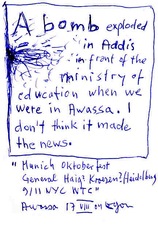 A bomb exploded
in Addis
in front of the
ministry of
education when we
were in Awassa. I
don't think it made
the news.
" Munich Oktoberfest
General Haig? Kroezen? Heidelberg
9/11 NYC WTC"
Awassa 17 VIII 04